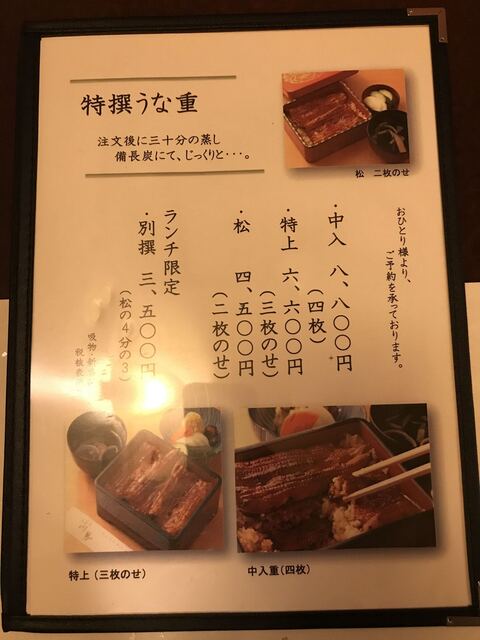 特撰うな重
注文後に三十分の蒸し
備長炭にて、じっくりと・・・。
松 二枚のせ
おひとり様より、
ご予約を承っております。
・中入 八、八〇〇円
（四枚）
・特上 六、六〇〇円
（三枚のせ）
・松 四、五〇〇円
（二枚のせ）
ランチ限定
・別撰 三、五〇〇円
（松の4分の3）
吸物・
税抜
特上（三枚のせ）
中入重（四枚）